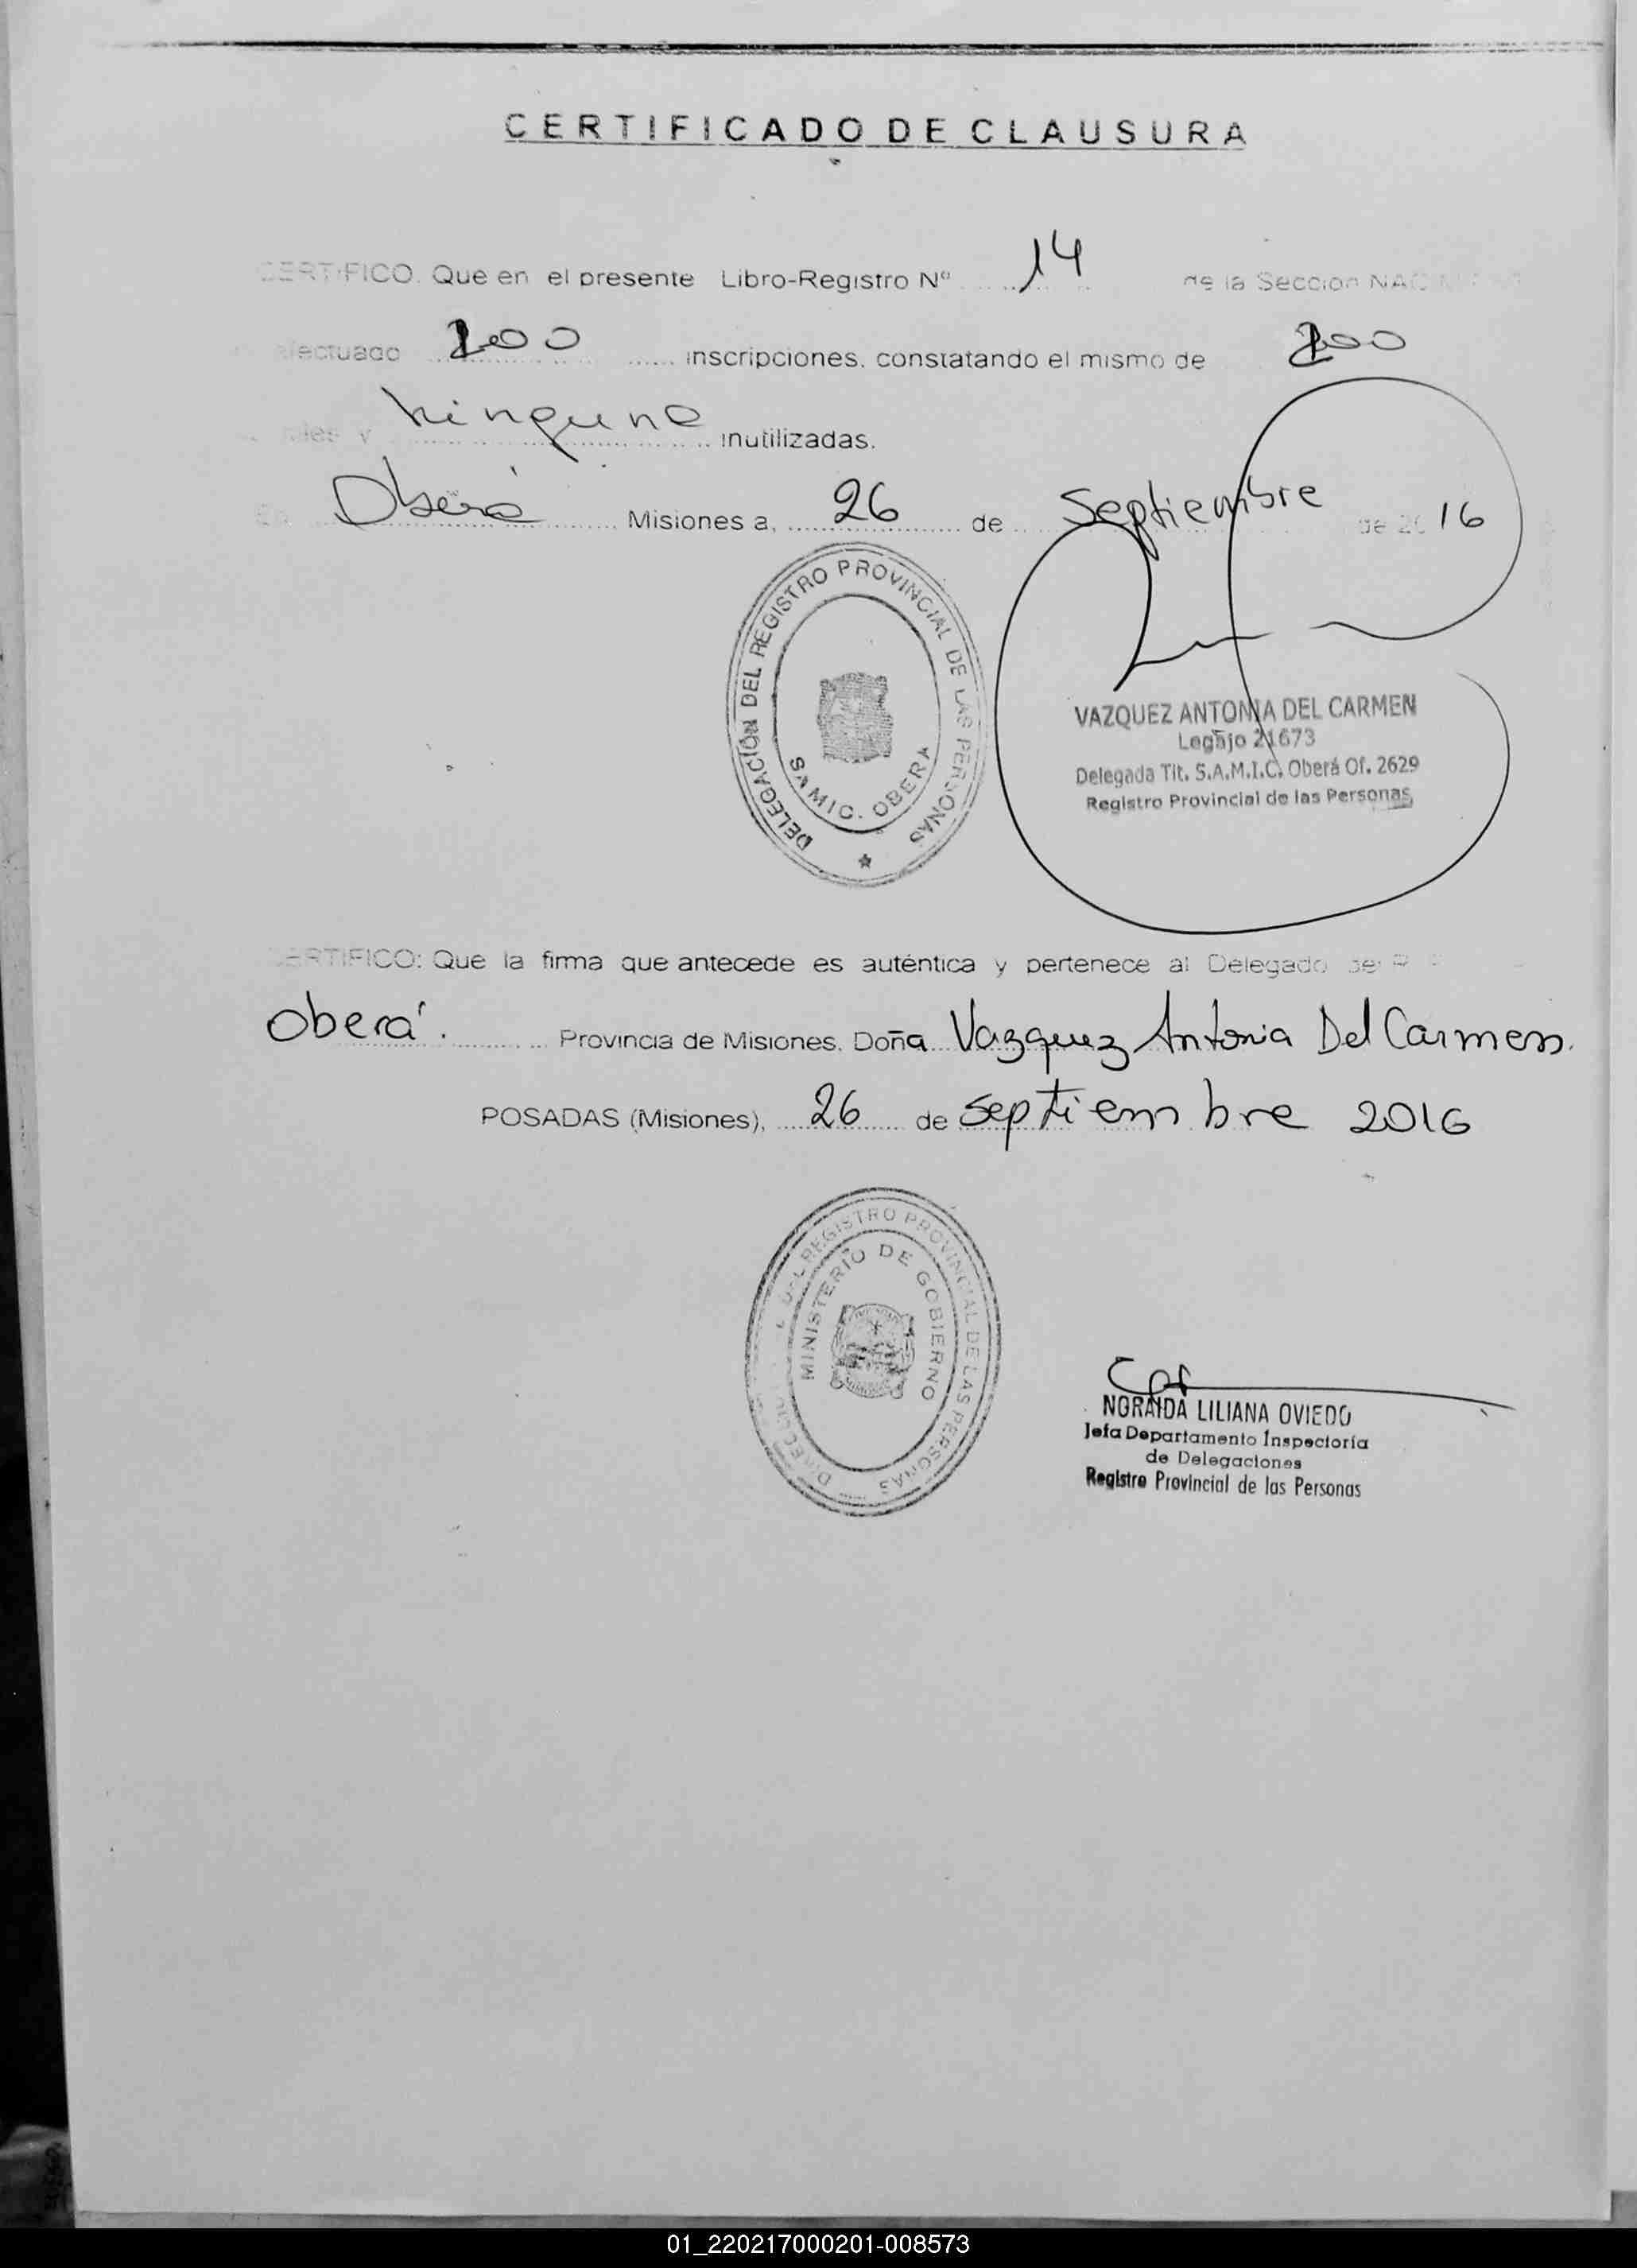 CERTIFICADO DE CLAUSURA
CERTIFICO. Que en el presente Libro-Registro Nº 14 de la Seccion
efectuado 200 inscripciones. constatando el mismo de 200
y ninguna inutilizadas.
En Oberá Misiones a, 26 de Septiembre de 2016
DELEGACIÓN DEL REGISTRO PROVINCIAL DE LAS PERSONAS
SAMIC. OBERA
VAZQUEZ ANTONIA DEL CARMEN
Legajo 21673
Delegada Tit. S.A.M.I.C. Oberá Of. 2629
Registro Provincial de las Personas
CERTIFICO: Que la firma que antecede es auténtica y pertenece al Delegado del
Oberá. Provincia de Misiones. Doña Vazquez Antonia Del Carmen.
POSADAS (Misiones), 26 de septiembre 2016
DEL REGISTRO PROVINCIAL DE LAS PERSONAS
MINISTERIO DE GOBIERNO
NORAIDA LILIANA OVIEDO
Jefa Departamento Inspectoría
de Delegaciones
Registro Provincial de las Personas
01_220217000201-008573